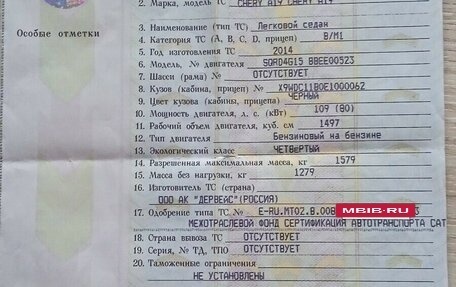 2. Марка, модель ТС CHERY A19 CHERY A19
Особые отметки
3. Наименование (тип ТС) Легковой седан
4. Категория ТС (А, В, С, D, прицеп) B/M1
5. Год изготовления ТС 2014
6. Модель, № двигателя SQRD4G15 BBEE00523
7. Шасси (рама) № ОТСУТСТВУЕТ
8. Кузов (кабина, прицеп) № X9WDC11B0E1000062
9. Цвет кузова (кабины, прицепа) ЧЕРНЫЙ
10. Мощность двигателя, л. с. (кВт) 109 (80)
11. Рабочий объем двигателя, куб. см 1497
12. Тип двигателя Бензиновый на бензине
13. Экологический класс ЧЕТВЕРТЫЙ
14. Разрешенная максимальная масса, кг 1579
15. Масса без нагрузки, кг 1279
16. Изготовитель ТС (страна)
ООО АК "ДЕРВЕЙС"(РОССИЯ)
17. Одобрение типа ТС № E-RU.MT02.B.00 MBIB-RU
МЕЖОТРАСЛЕВОЙ ФОНД СЕРТИФИКАЦИЯ АВТОТРАНСПОРТА САТ
18. Страна вывоза ТС ОТСУТСТВУЕТ
19. Серия, № ТД, ТПО ОТСУТСТВУЕТ
20. Таможенные ограничения
НЕ УСТАНОВЛЕНЫ